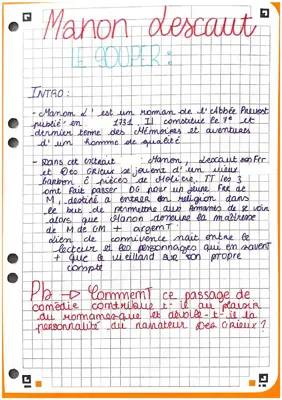 Manon Lescaut
LE SOUPER :
INTRO :
- Manon L' est un roman de l'Abbé Prévost
publié en 1731. Il constitue le 7e et
dernier tome des Mémoires et aventures
d'un homme de qualité
- Dans cet extrait : Manon, Lescaut son Frr
et Des Grieux se jouent d'un vieux
barbon à pièces de Molière. TT les 3
ont fait passer DG pour un jeune Frr de
M, destiné à entrer en religion dans
le but de permettre aux Amants de se voir
alors que Manon demeure la maîtresse
de M de GM + argent.
Lien de connivence nait entre le
lecteur et les personnages qui en savent
+ que le vieillard sur son propre
compte
Pb → Comment ce passage de
comédie contribue-t-il au plaisir
du romanesque et dévoile-t-il la
personnalité du narrateur Des Grieux ?